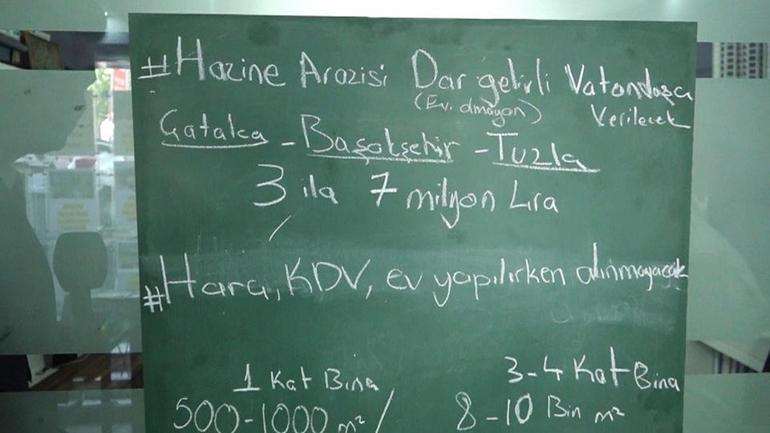 #Hazine Arazisi Dar gelirli Vatandaşa
(Evi olmayan) Verilecek
Çatalca - Başakşehir - Tuzla
3 ila 7 milyon Lira
#Harç, KDV, ev yapılırken alınmayacak
1 Kat Bina 3-4 Kat Bina
500-1000 m² / 8-10 Bin m²